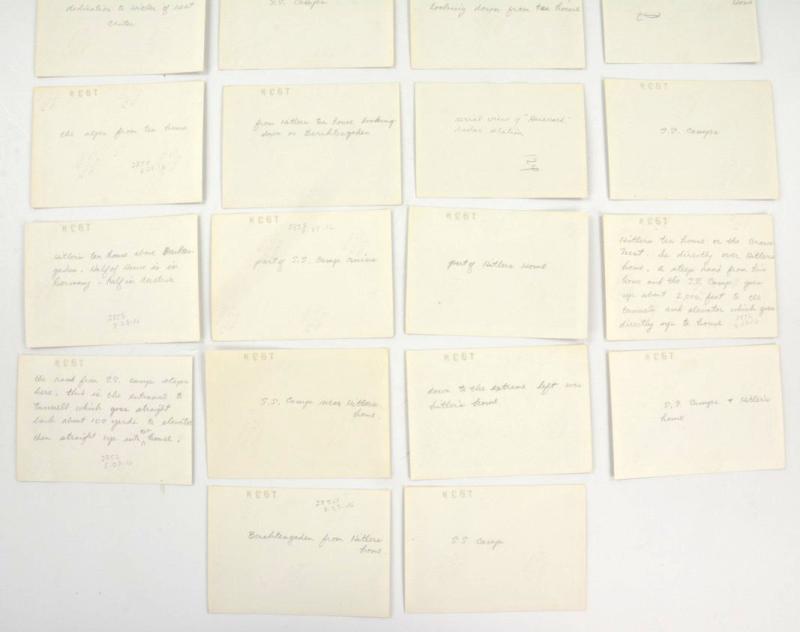 dedication to victor of west
center
S.S. Camps
looking down from tea house
home
the alps from tea house
2855
5.23.16
from Hitlers tea house looking
down on Berchtesgaden
aerial view of
radar station
S.S. Camps
Hitlers tea house above
gaden. Half of house is in
Germany - half in Austria
2855
5.23.16
part of S.S. Camp ruins
part of Hitlers Home
Hitlers tea house or the
Nest. Is directly over Hitlers
home. A steep road from his
home and the S.S. Camps goes
up about 2,000 feet to the
tunnels and elevator which goes
directly up to house
the road from S.S. camp stops
here. this is the entrance to
tunnell which goes straight
back about 100 yards to elevator
then straight up into house.
S.S. Camp near Hitlers
home.
down to the extreme left was
hitlers home.
S.S. Camps + Hitlers
home
Berchtesgaden from Hitlers
home
S.S Camp